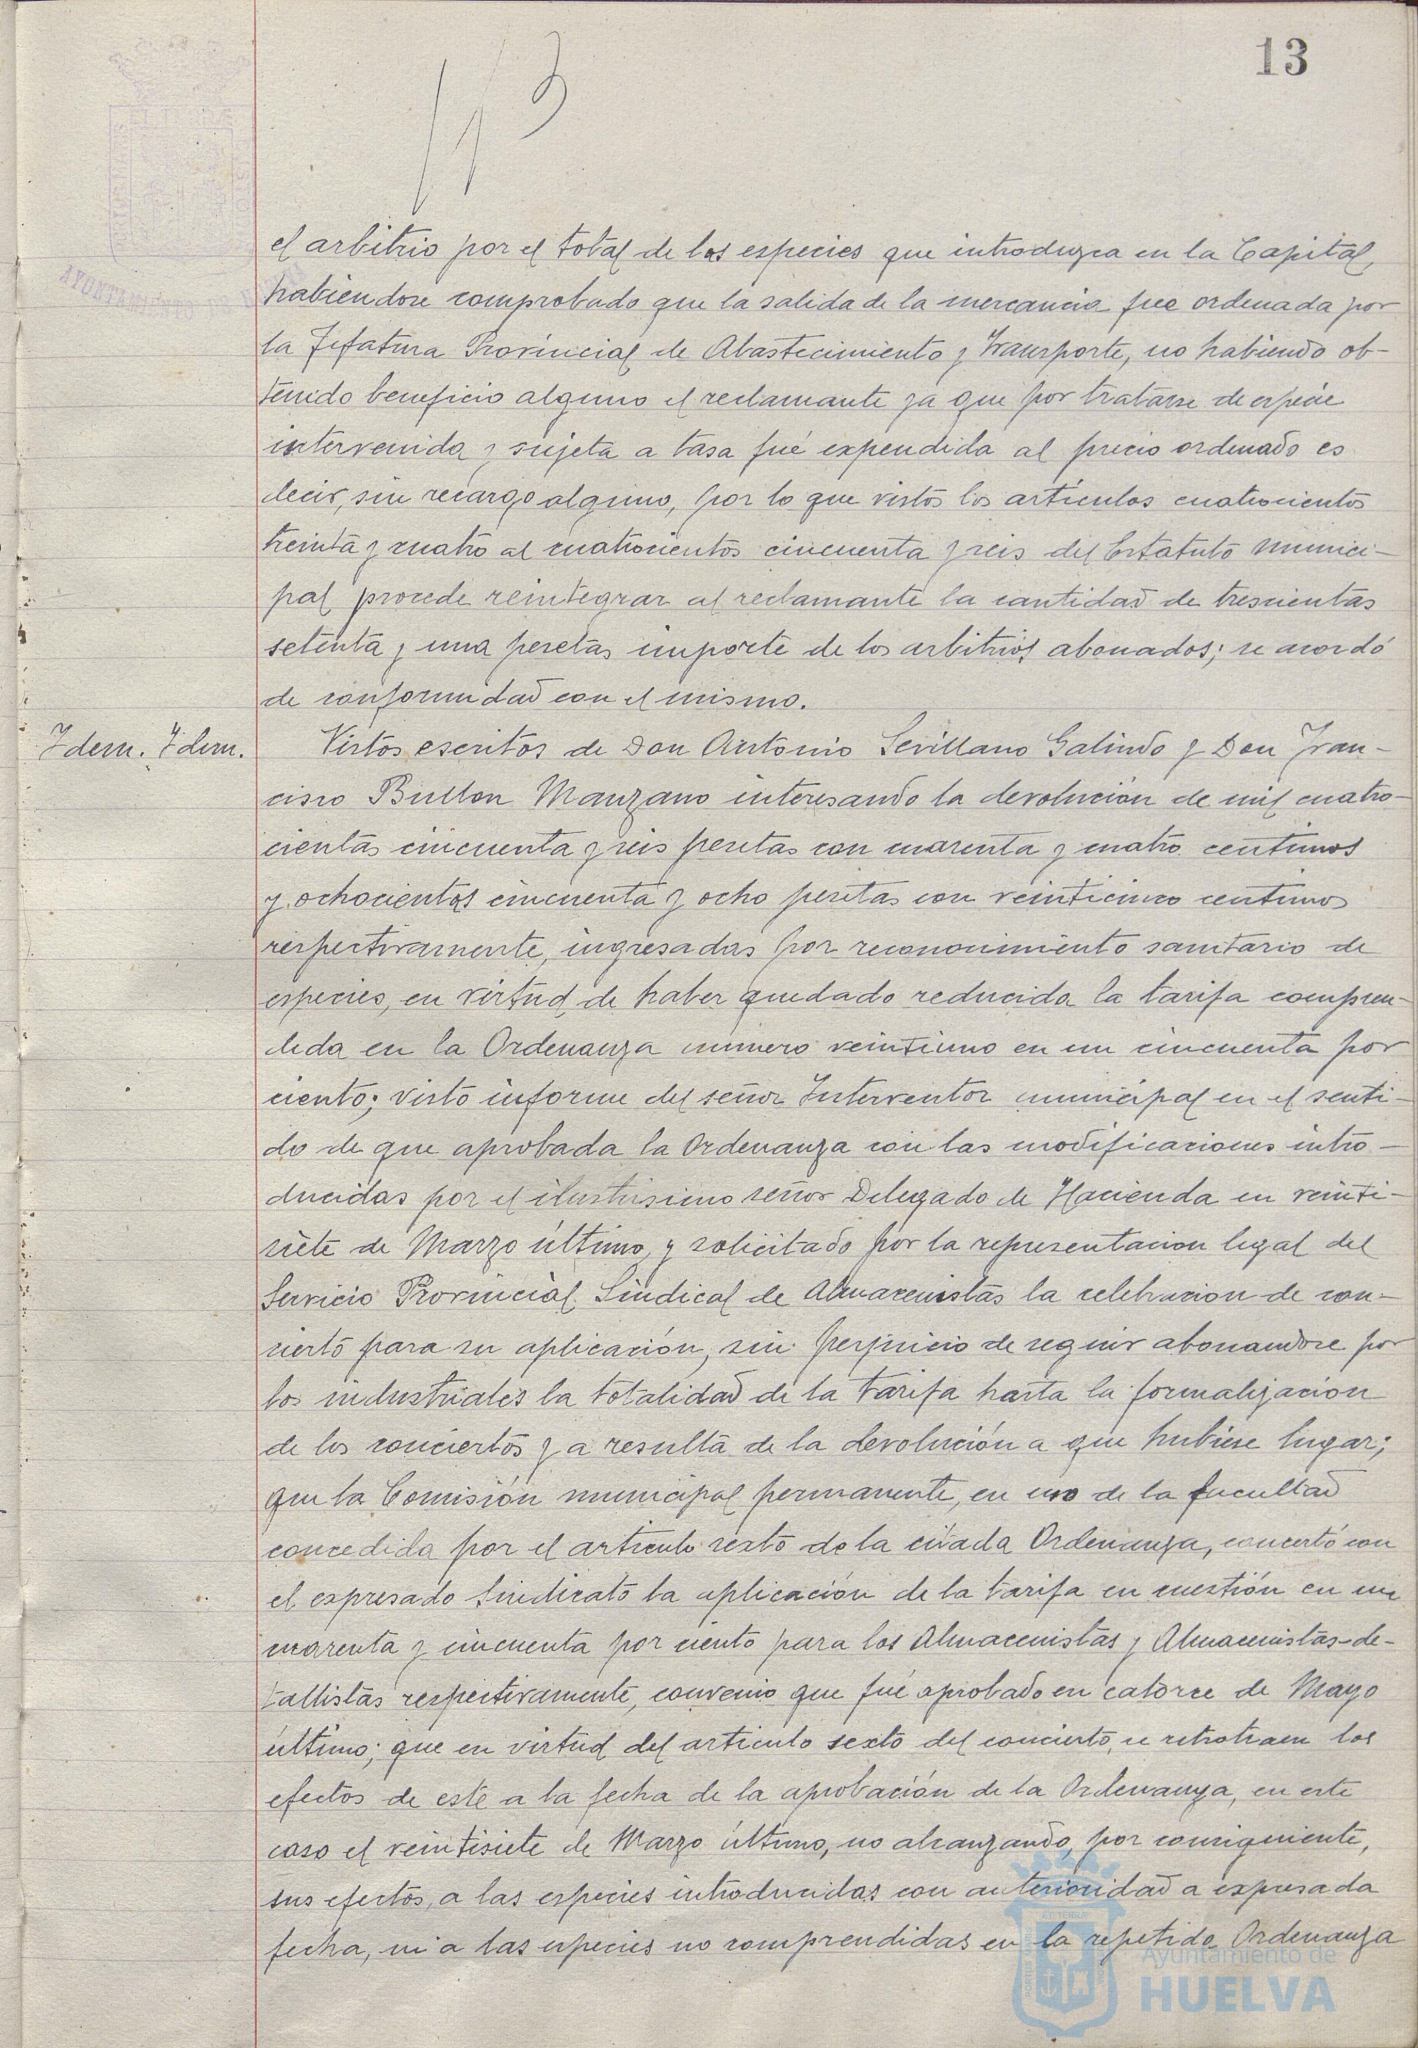 13
113
el arbitrio por el total de las especies que introduzca en la Capital,
habiendose comprobado que la salida de la mercancia fue ordenada por
la Jefatura Provincial de Abastecimiento y Transporte, no habiendo ob-
tenido beneficio alguno el reclamante ya que por tratarse de especie
intervenida y sujeta a tasa fué expendida al precio ordenado es
decir, sin recargo alguno, por lo que vistos los artículos cuatrocientos
treinta y cuatro al cuatrocientos cincuenta y seis del Estatuto Munici-
pal procede reintegrar al reclamante la cantidad de trescientas
setenta y una pesetas importe de los arbitrios abonados; se acordó
de conformidad con el mismo.
Idem. Idem.
Vistos escritos de Don Antonio Sevillano Galindo y Don Fran-
cisco Bullon Manzano interesando la devolución de mil cuatro-
cientas cincuenta y seis pesetas con cuarenta y cuatro centimos
y ochocientas cincuenta y ocho pesetas con veinticinco centimos
respectivamente, ingresadas por reconocimiento sanitario de
especies, en virtud de haber quedado reducida la tarifa compren-
dida en la Ordenanza número veintiuno en un cincuenta por
ciento; visto informe del señor Interventor municipal en el senti-
do de que aprobada la Ordenanza con las modificaciones intro-
ducidas por el ilustrisimo señor Delegado de Hacienda en veinti-
siete de Marzo último, y solicitado por la representacion legal del
Servicio Provincial Sindical de Almacenistas la celebracion de con-
cierto para su aplicación, sin perjuicio de seguir abonandose por
los industriales la totalidad de la tarifa hasta la formalizacion
de los conciertos y a resulta de la devolución a que hubiese lugar;
que la Comisión municipal permanente, en uso de la facultad
concedida por el articulo sexto de la citada Ordenanza, concertó con
el expresado Sindicato la aplicación de la tarifa en cuestión en un
cuarenta y cincuenta por ciento para los Almacenistas y Almacenistas-de-
tallistas respectivamente, convenio que fué aprobado en catorce de Mayo
último; que en virtud del articulo sexto del concierto, se retrotraen los
efectos de este a la fecha de la aprobación de la Ordenanza, en este
caso el veintisiete de Marzo último, no alcanzando, por consiguiente,
sus efectos, a las especies introducidas con anterioridad a expresada
fecha, ni a las especies no comprendidas en la repetida Ordenanza
Ayuntamiento de
HUELVA